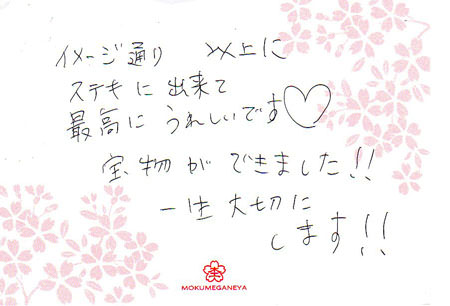 イメージ通り 以上に
ステキに出来て
最高にうれしいです♡
宝物ができました!!
一生大切に
します!!
MOKUMEGANEYA